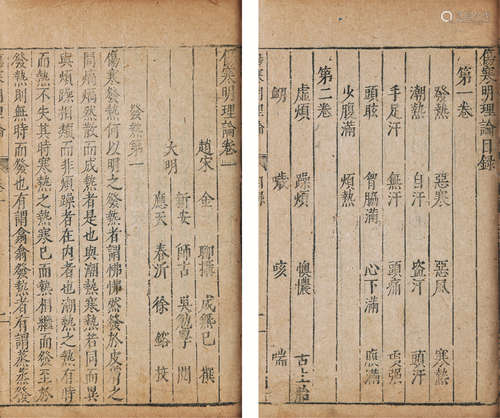 傷寒明理論目録
第一卷
發熱 惡寒 惡風 寒熱
潮熱 自汗 盜汗 頭汗
手足汗 無汗 頭痛 項強
頭眩 胷脇滿 心下滿 腹滿
少腹滿 煩熱
第二卷
虛煩 躁煩 懊憹 舌上胎
衂 噦 咳 喘
傷寒明理論卷一
趙宋 金 聊攝 成無己 撰
大明 新安 師古 吳勉學 閱
應天 春沂 徐鎔 校
發熱第一
傷寒發熱何以明之發熱者謂怫怫然發於皮膚之
間熇熇然散而成熱者是也與潮熱寒熱若同而異
與煩躁相類而非煩躁者在內者也潮熱之熱有時
而熱不失其時寒熱之熱寒已而熱相繼而發至於
發熱則無時而發也有謂翕翕發熱者有謂蒸蒸發